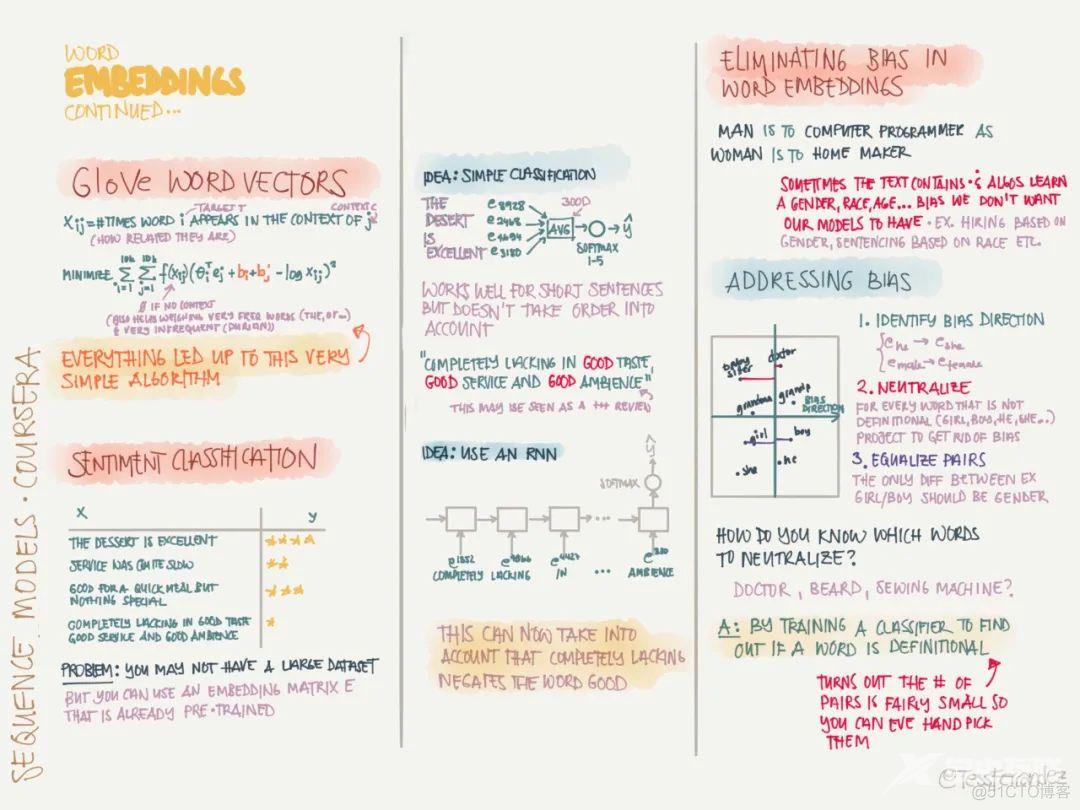 WORD
EMBEDDINGS
CONTINUED...
GloVe WORD VECTORS
TARGET T
CONTEXT C
Xij = #TIMES WORD i APPEARS IN THE CONTEXT OF j
(HOW RELATED THEY ARE)
MINIMIZE 10k∑i=1 10k∑j=1 f(Xij)(θiᵀej + bi + bj' - log Xij)²
IF NO CONTEXT
(ALSO HELPS WEIGHING VERY FREQ WORDS (THE, OF...)
& VERY INFREQUENT (DURIAN))
EVERYTHING LED UP TO THIS VERY
SIMPLE ALGORITHM
SENTIMENT CLASSIFICATION
X y
THE DESSERT IS EXCELLENT ★★★★
SERVICE WAS QUITE SLOW ★★
GOOD FOR A QUICK MEAL BUT ★★★
NOTHING SPECIAL
COMPLETELY LACKING IN GOOD TASTE ★
GOOD SERVICE AND GOOD AMBIENCE
PROBLEM: YOU MAY NOT HAVE A LARGE DATASET
BUT YOU CAN USE AN EMBEDDING MATRIX E
THAT IS ALREADY PRE-TRAINED
SEQUENCE MODELS · COURSERA
IDEA: SIMPLE CLASSIFICATION
THE e8928
DESERT e2468
IS e4694
EXCELLENT e3180
300D
AVG
ŷ
SOFTMAX
1-5
WORKS WELL FOR SHORT SENTENCES
BUT DOESN'T TAKE ORDER INTO
ACCOUNT
"COMPLETELY LACKING IN GOOD TASTE,
GOOD SERVICE AND GOOD AMBIENCE"
THIS MAY BE SEEN AS A +++ REVIEW
IDEA: USE AN RNN
ŷ
SOFTMAX
...
e1852 e4966 e4427 e330
COMPLETELY LACKING IN ... AMBIENCE
THIS CAN NOW TAKE INTO
ACCOUNT THAT COMPLETELY LACKING
NEGATES THE WORD GOOD
ELIMINATING BIAS IN
WORD EMBEDDINGS
MAN IS TO COMPUTER PROGRAMMER AS
WOMAN IS TO HOME MAKER
SOMETIMES THE TEXT CONTAINS & ALGOS LEARN
A GENDER, RACE, AGE... BIAS WE DON'T WANT
OUR MODELS TO HAVE · EX. HIRING BASED ON
GENDER, SENTENCING BASED ON RACE ETC.
ADDRESSING BIAS
baby sitter
doctor
grandma
grandp
BIAS
DIRECTION
girl
boy
she
he
1. IDENTIFY BIAS DIRECTION
ehe → eshe
emale → efemale
2. NEUTRALIZE
FOR EVERY WORD THAT IS NOT
DEFINITIONAL (GIRL, BOY, HE, SHE...)
PROJECT TO GET RID OF BIAS
3. EQUALIZE PAIRS
THE ONLY DIFF BETWEEN EX
GIRL/BOY SHOULD BE GENDER
HOW DO YOU KNOW WHICH WORDS
TO NEUTRALIZE?
DOCTOR, BEARD, SEWING MACHINE?
A: BY TRAINING A CLASSIFIER TO FIND
OUT IF A WORD IS DEFINITIONAL
TURNS OUT THE # OF
PAIRS IS FAIRLY SMALL SO
YOU CAN EVE HAND PICK
THEM
@TessFerrandez
@51CTO博客